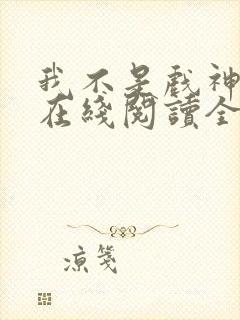 我不是戲神
在綫閱讀全
凉箋